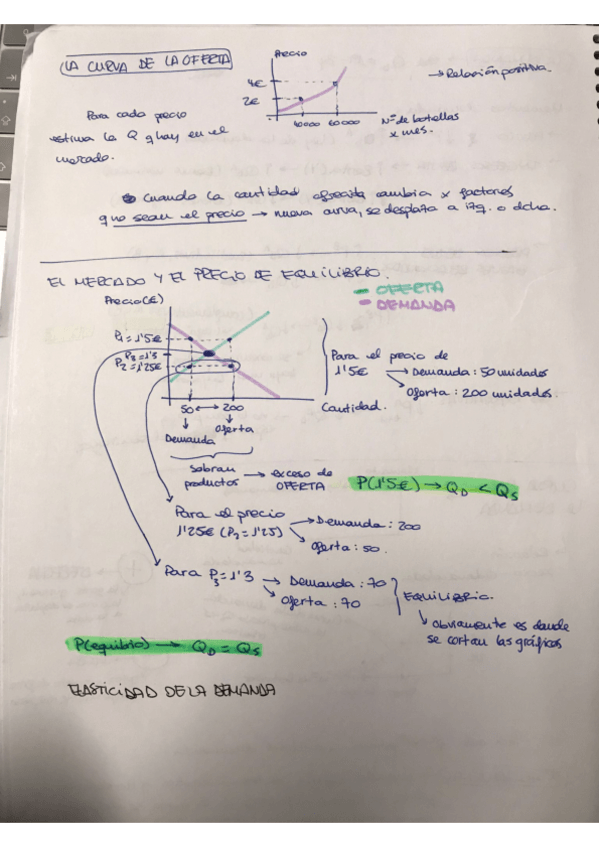 LA CURVA DE LA OFERTA
Precio
4€
2€
40000 60000
Nº de botellas
x mes.
→ Relación positiva.
Para cada precio
estima la Q q hay en el
mercado.
Cuando la cantidad ofrecida cambia x factores
q no sean el precio → nueva curva, se desplaza a izq. o dcha.
EL MERCADO Y EL PRECIO DE EQUILIBRIO.
OFERTA
DEMANDA
Precio(€)
P₁ = 1'5€
P₃ = 1'3
P₂ = 1'25€
50 ↔ 200
Cantidad.
Demanda
Oferta
Para el precio de
1'5€ → Demanda: 50 unidades
Oferta: 200 unidades.
Sobran
productos → exceso de
OFERTA
P(1'5€) → Q_D < Q_S
Para el precio
1'25€ (P₂ = 1'25) → Demanda: 200
Oferta: 50.
Para P₃ = 1'3 → Demanda: 70
Oferta: 70
EQUILIBRIO.
Obviamente es donde
se cortan las gráficas
P(equibrio) → Q_D = Q_S
ELASTICIDAD DE LA DEMANDA